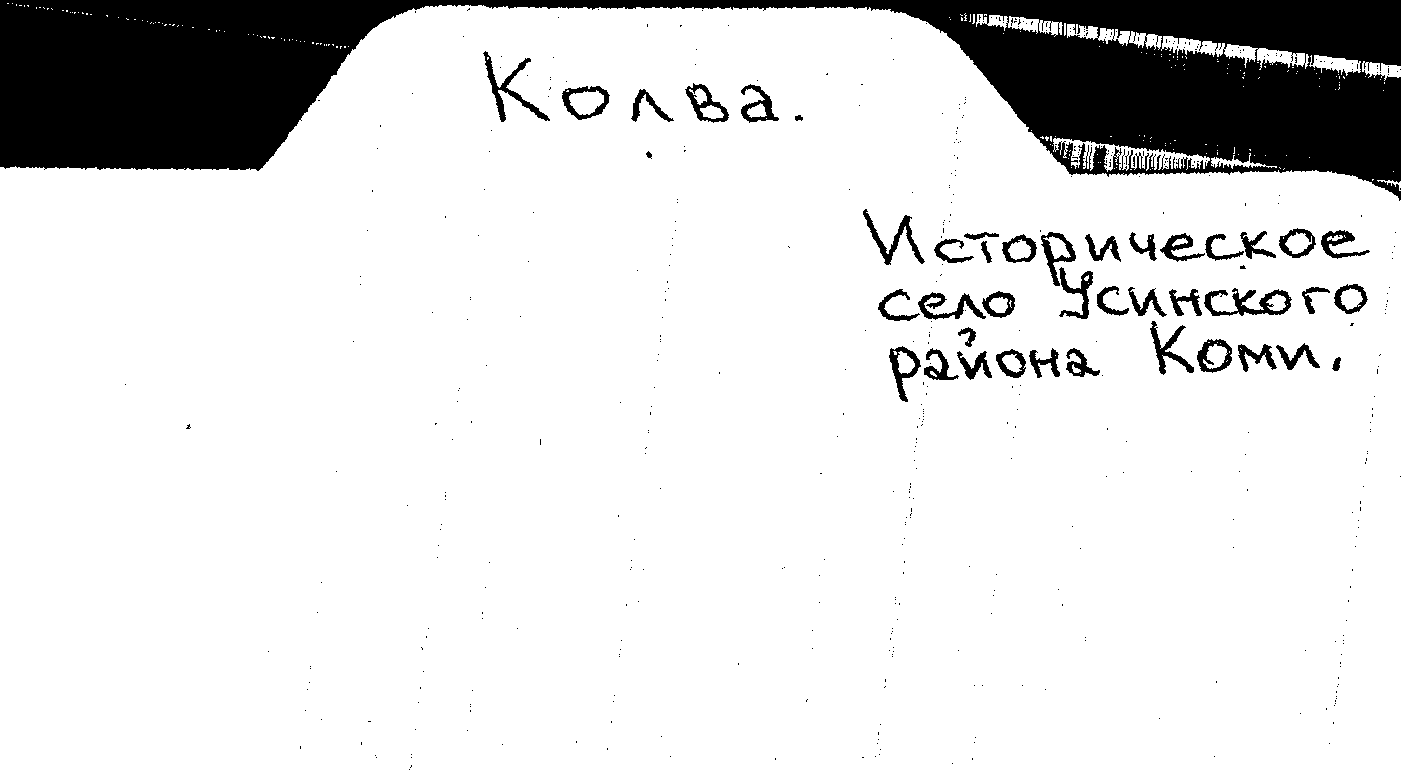 Колва.
Историческое
село Усинского
района Коми.